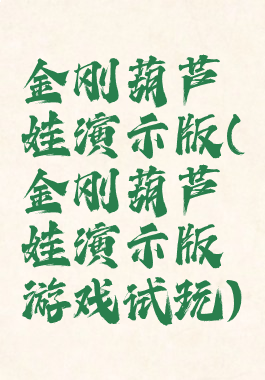 金刚葫芦
娃演示版(
金刚葫芦
娃演示版
游戏试玩)